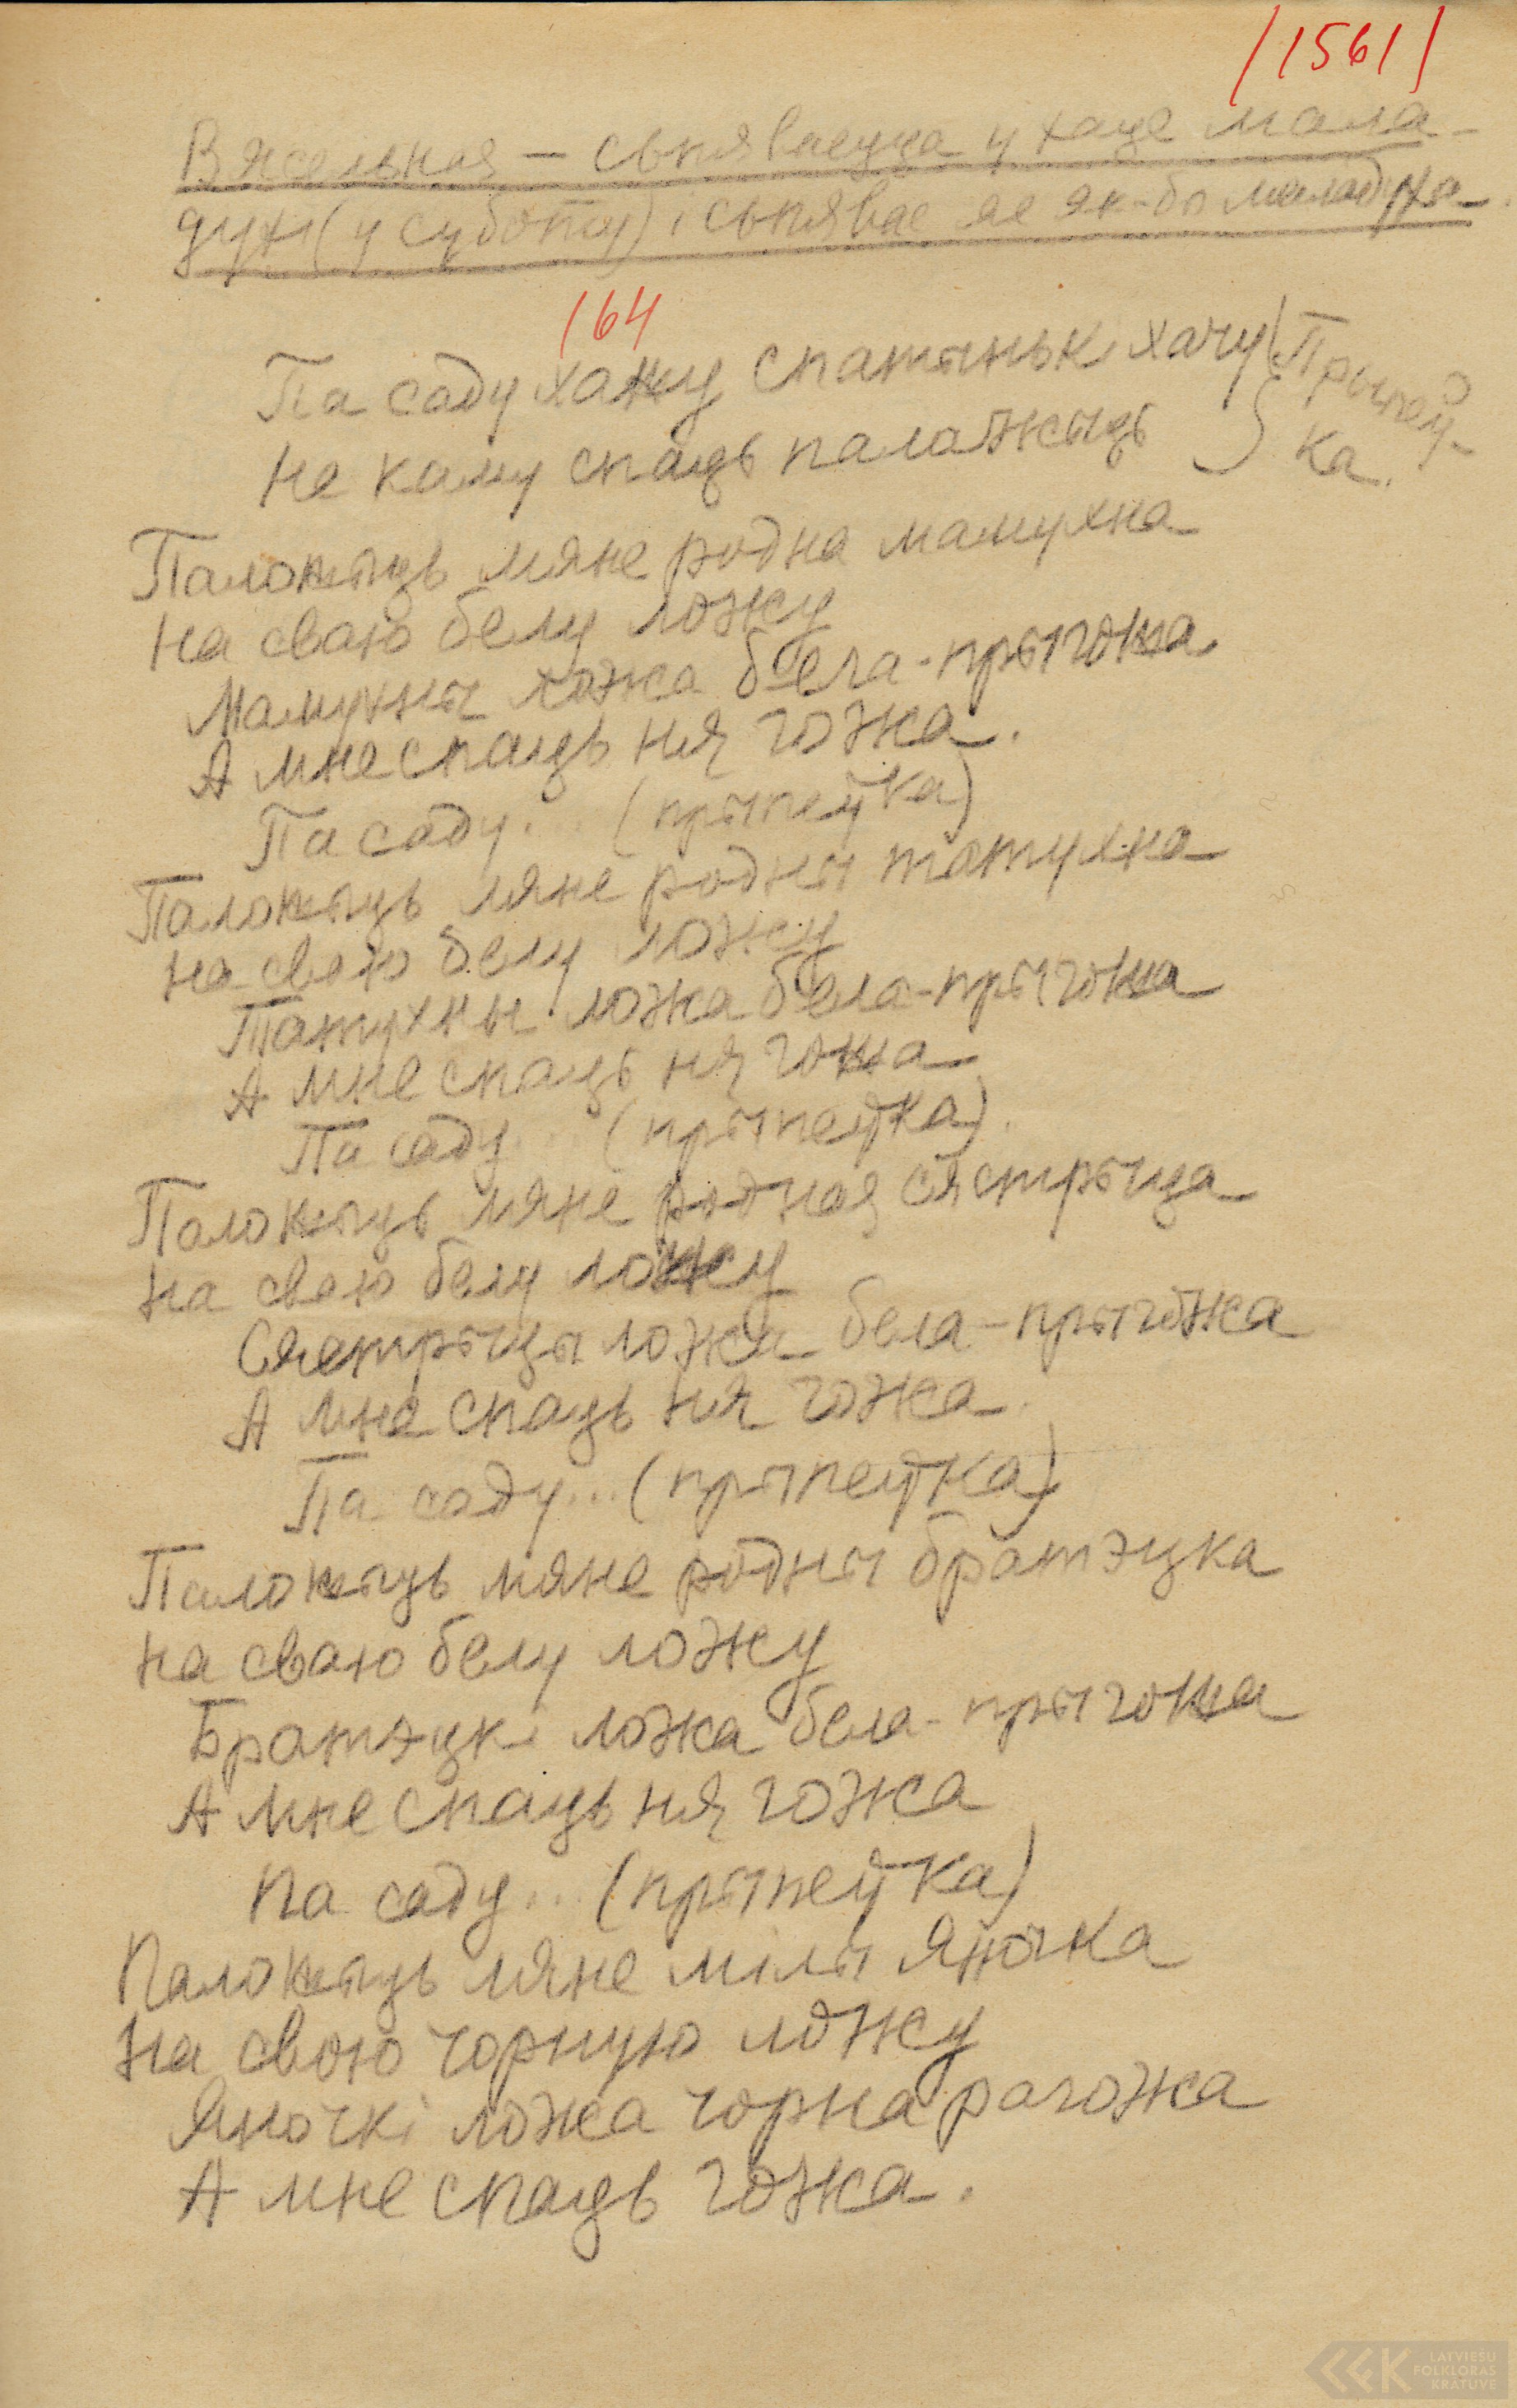 /1561/
Вясельная – сьпяваецца у хаце мала-
духі (у суботу) і сьпявае яе як-бы маладуха.
164
Па саду хажу спатыньк хачу } Прыпеў-
Не каму спаць палажыць } ка.
Паложыць мяне родна мамухна
На сваю белу ложу
Мамухны ложа бела-прыгожа
А мне спаць ня гожа.
Па саду... (прыпеўка)
Паложыць мяне родны татухна
На сваю белу ложу
Татухны ложа бела-прыгожа
А мне спаць ня гожа
Па саду... (прыпеўка).
Паложыць мяне родная сястрыца
На сваю белу ложу
Сястрыцы ложа бела-прыгожа
А мне спаць ня гожа.
Па саду... (прыпеўка)
Паложыць мяне родны братэцка
На сваю белу ложу
Братэцкі ложа бела-прыгожа
А мне спаць ня гожа
Па саду... (прыпеўка)
Паложыць мяне мілы Яночка
На свою чорную ложу
Яночкі ложа чорна рагожа
А мне спаць гожа.
LATVIEŠU
FOLKLORAS
KRĀTUVE